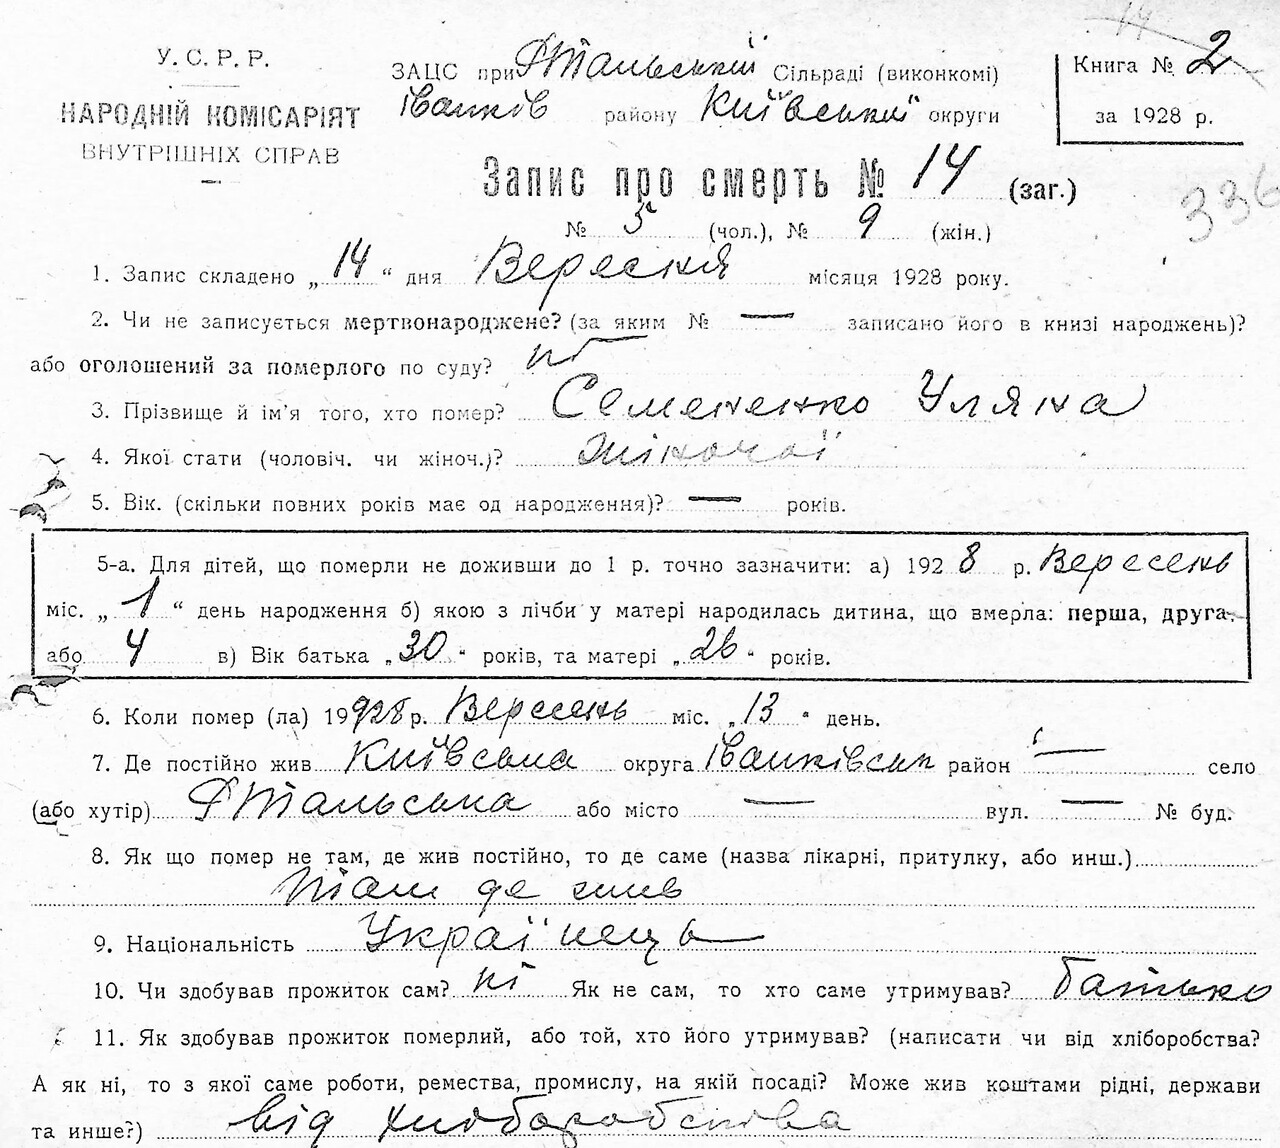 14
У. С. Р. Р.
НАРОДНІЙ КОМІСАРІЯТ
ВНУТРІШНІХ СПРАВ
ЗАЦС при Фтальській Сільраді (виконкомі)
Іванків району Київській округи
Книга № 2
за 1928 р.
Запис про смерть № 14 (заг.)
336
№ 5 (чол.), № 9 (жін.)
1. Запис складено „ 14 “ дня Вересня місяця 1928 року.
2. Чи не записується мертвонароджене? (за яким № — записано його в книзі народжень)?
або оголошений за померлого по суду? ні
3. Прізвище й ім'я того, хто помер? Семененко Уляна
4. Якої стати (чоловіч. чи жіноч.)? жіночої
5. Вік. (скільки повних років має од народження)? — років.
5-а. Для дітей, що померли не доживши до 1 р. точно зазначити: а) 192 8 р. Вересень
міс. „ 1 “ день народження б) якою з лічби у матері народилась дитина, що вмерла: перша, друга.
або 4 в) Вік батька „ 30 “ років, та матері „ 26 “ років.
6. Коли помер (ла) 19 928 р. Вересень міс. „ 13 “ день.
7. Де постійно жив Київська округа Іванківськ район — село
(або хутір) Фтальська або місто — вул. — № буд.
8. Як що помер не там, де жив постійно, то де саме (назва лікарні, притулку, або инш.)
там де жив
9. Національність Українець
10. Чи здобував прожиток сам? ні Як не сам, то хто саме утримував? батько
11. Як здобував прожиток померлий, або той, хто його утримував? (написати чи від хліборобства?
А як ні, то з якої саме роботи, ремества, промислу, на якій посаді? Може жив коштами рідні, держави
та инше?) від хліборобства